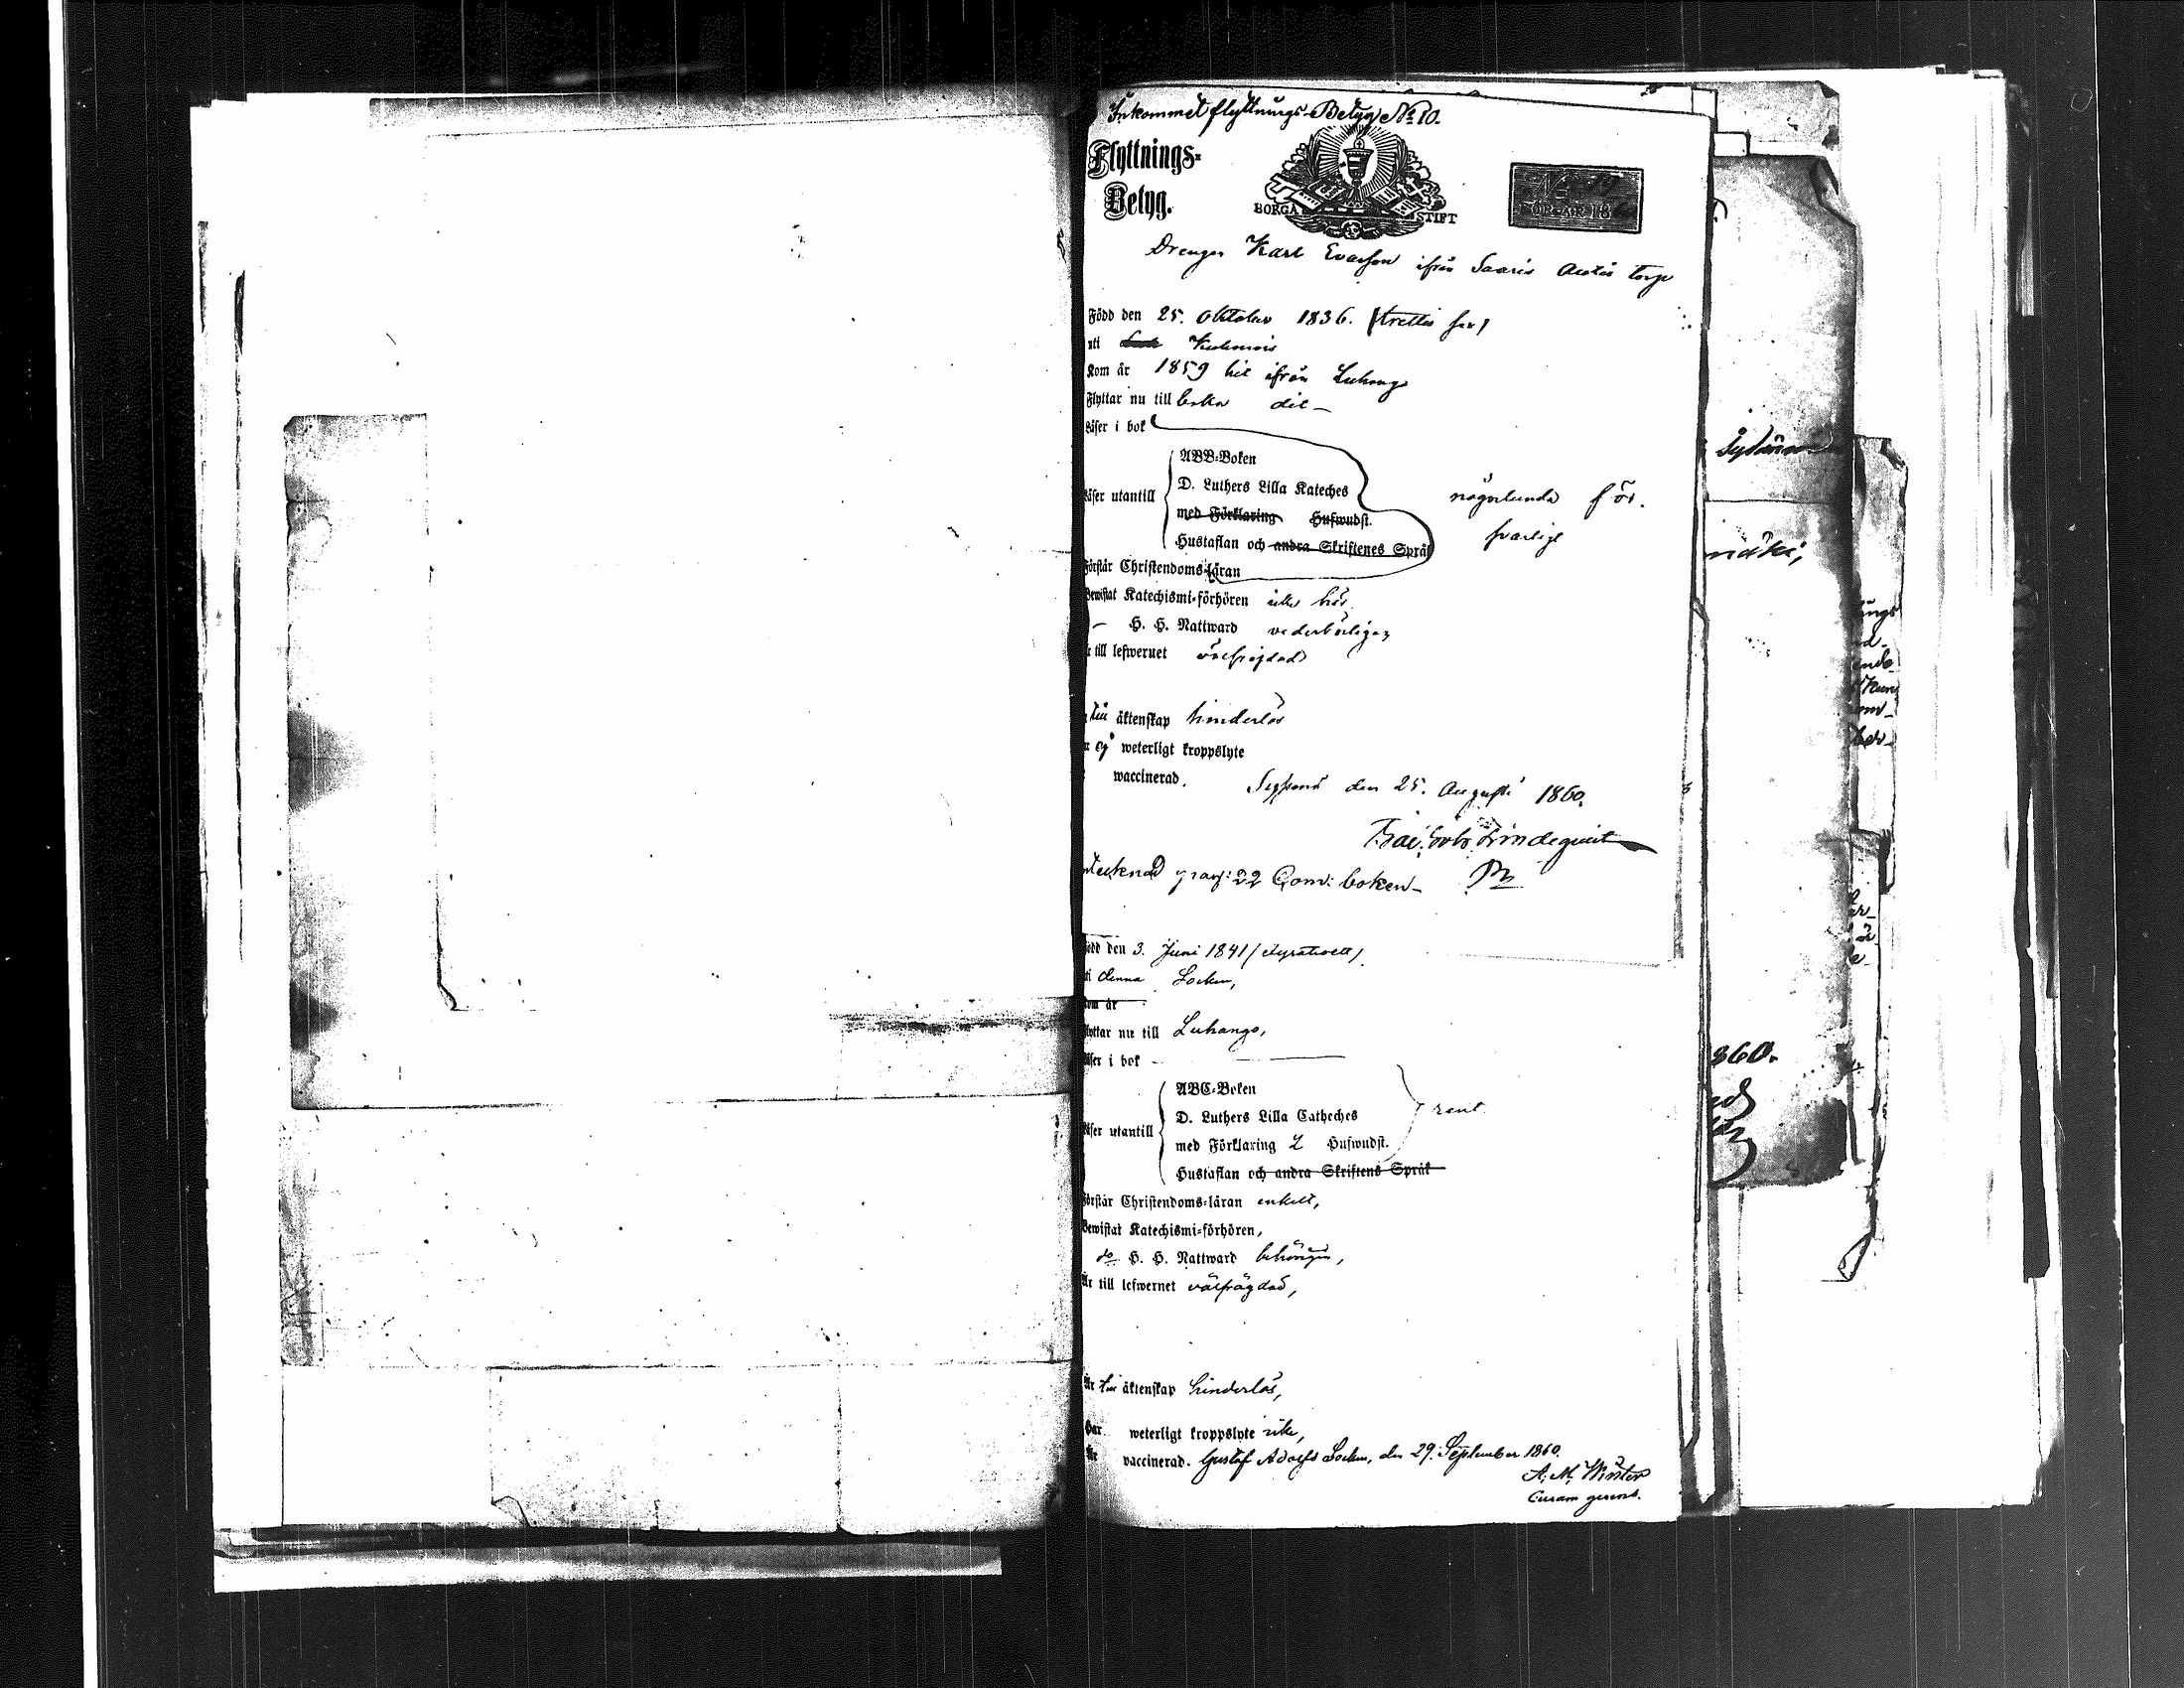 Inkommet flyttnings-Betyg No 10.
Flyttnings-
Betyg.
BORGÅ STIFT
No 10
FÖR ÅR 18
Drengen Karl Evasson ifrån Saaris torp
Född den 25. Oktober 1836. (trettio sex)
uti Kuhmois
Kom år 1859 hit ifrån Luhango
Flyttar nu till baka dit –
Läser i bok
ABB-Boken
D. Luthers Lilla Kateches
Läser utantill
någorlunda för-
med Förklaring Hufwudst.
svarligt
Hustaflan och andra Skriftenes Språk
Förstår Christendoms-läran
Bewistat Katechismi-förhören icke här
– H. H. Nattward vederbörligen
är till lefwernet välfrägdad
till äktenskap hinderlös
ej weterligt kroppslyte
waccinerad. Sysmä den 25. Augusti 1860.
Lindequist
tecknad pag: 22 Com: boken –
Född den 3. Juni 1841 (fyratioett)
i denna Socken,
Kom år
Flyttar nu till Luhango,
Läser i bok –
ABC-Boken
D. Luthers Lilla Catheches
rent
Läser utantill
med Förklaring 2 Hufwudst.
Hustaflan och andra Skriftens Språk
Förstår Christendoms-läran enkelt,
Bewistat Katechismi-förhören,
do H. H. Nattward behörigen,
Är till lefwernet välfrägdad,
Är till äktenskap hinderlös,
Har weterligt kroppslyte icke,
Är vaccinerad. Gustaf Adolfs Socken, den 29. September 1860.
A. M. Winter
Curam gerens.
860.